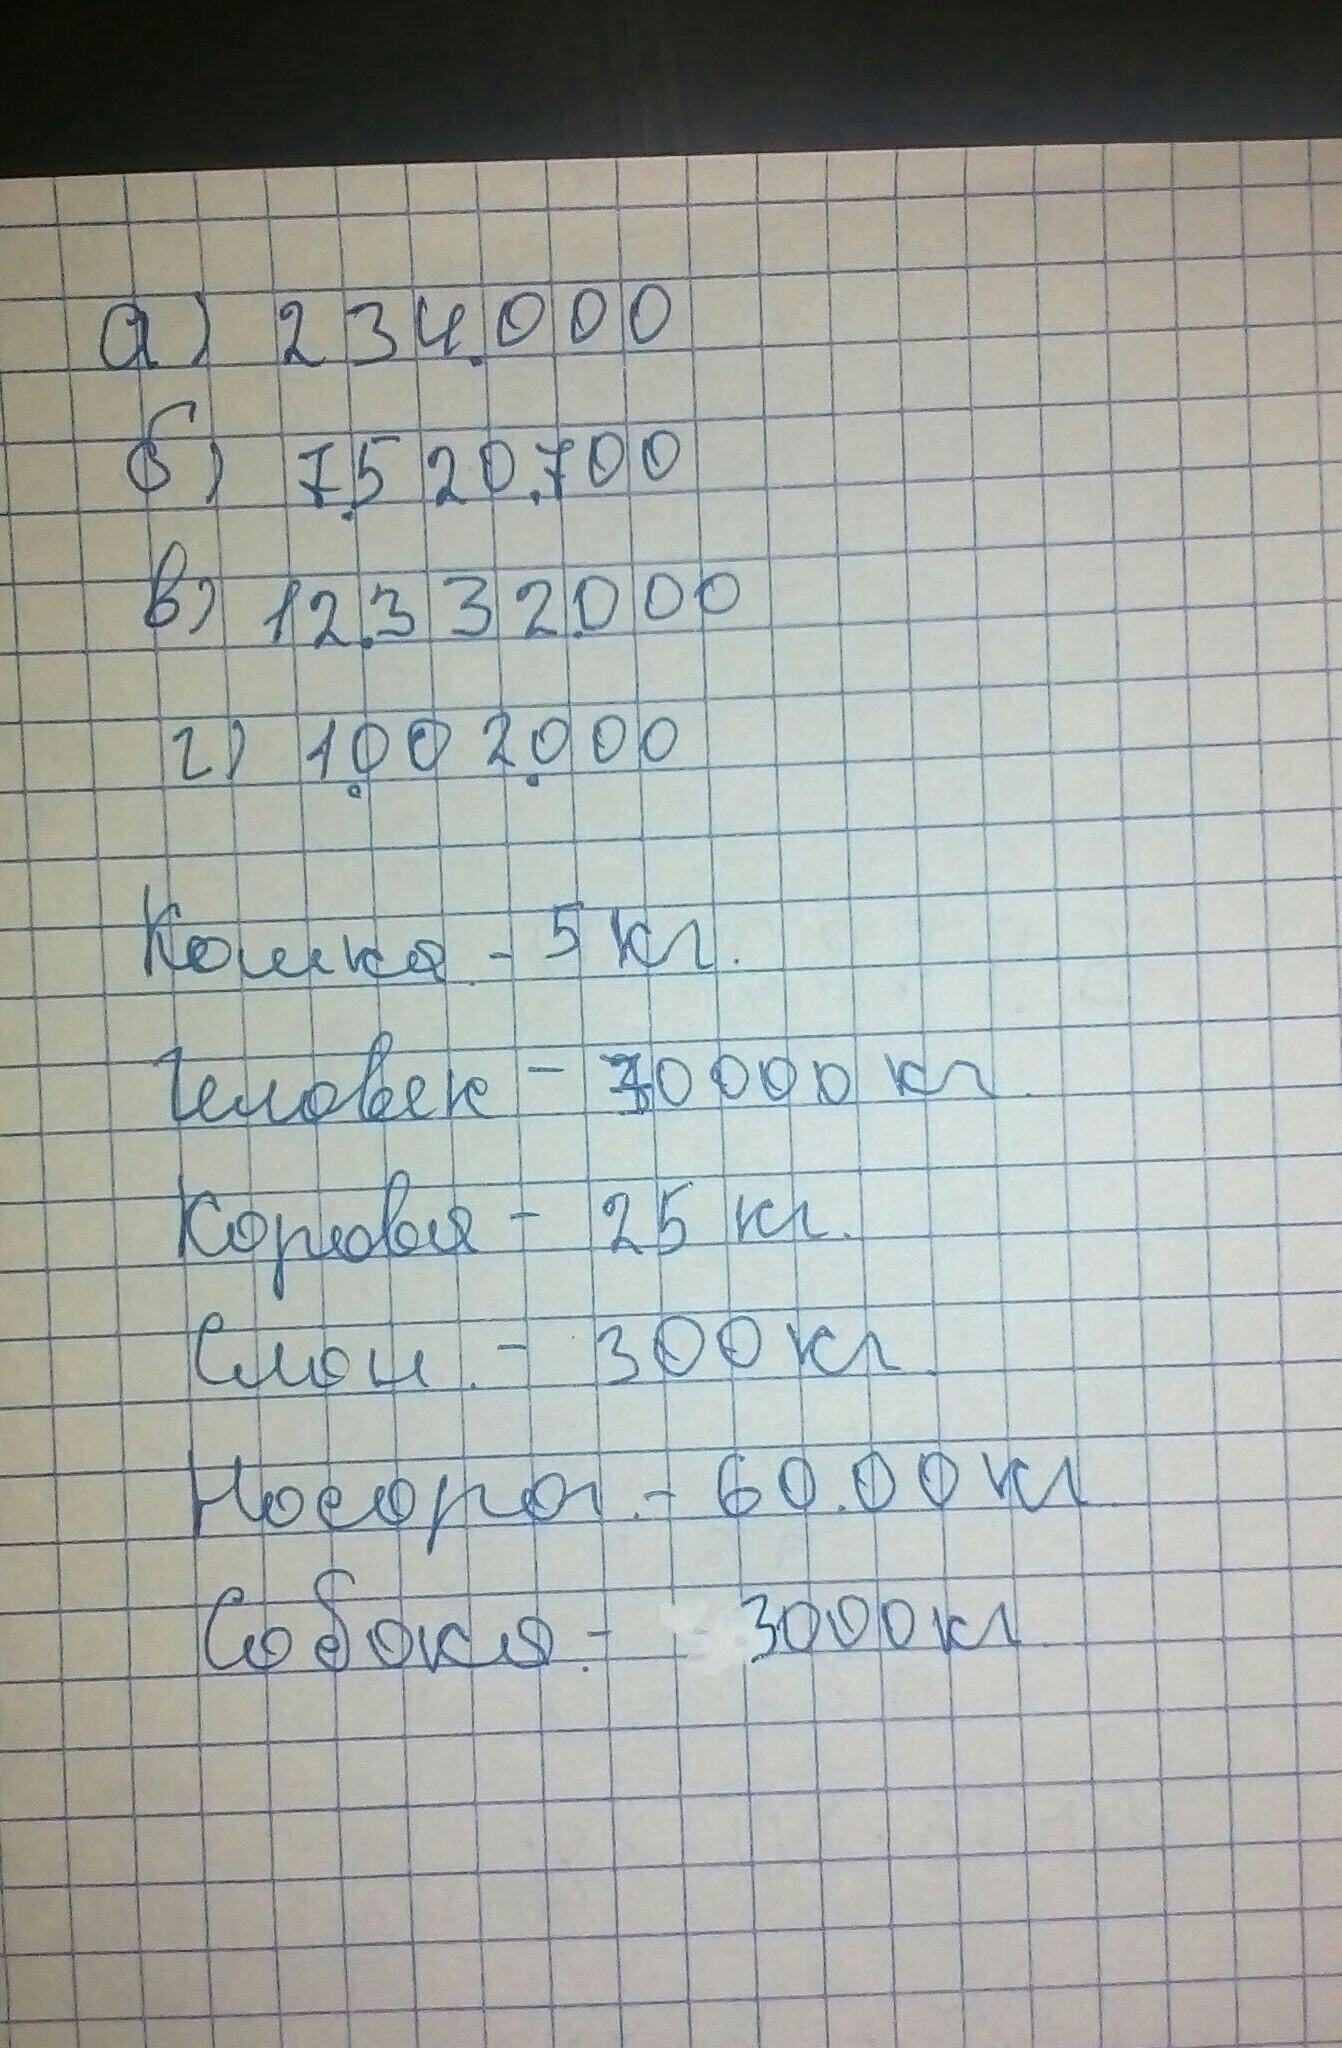 а) 234.000
б) 7.520.700
в) 12.332.000
г) 1.002.000
Кошка - 5 кг.
Человек - 70000 кг.
Корова - 25 кг.
Слон. - 300 кг.
Носорог. - 60.00 кг.
Собака. - 3000 кг.